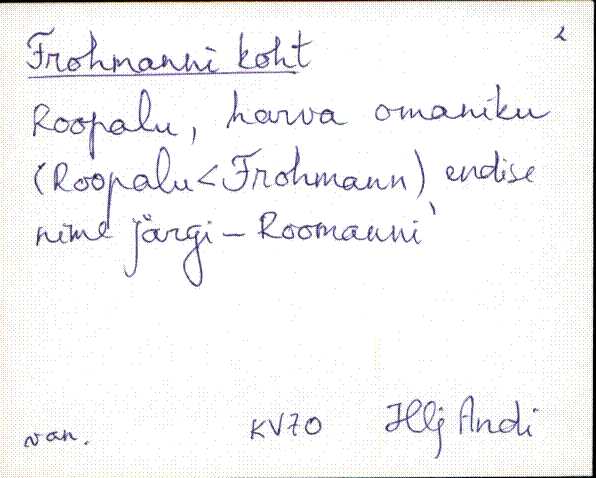 Frohmanni koht
Roopalu, harva omaniku
(Roopalu < Frohmann) endise
nime järgi – Roomanni`
van. KV70 Hlj Andi